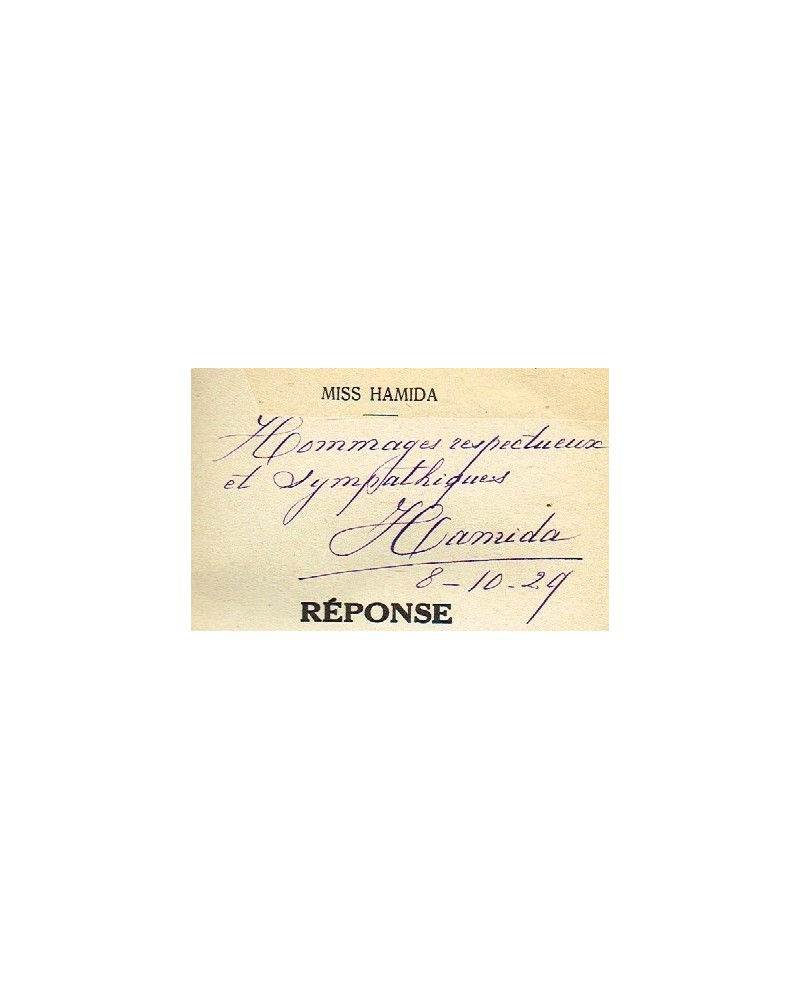 MISS HAMIDA
Hommages respectueux
et sympathiques
Hamida
8-10-29
RÉPONSE